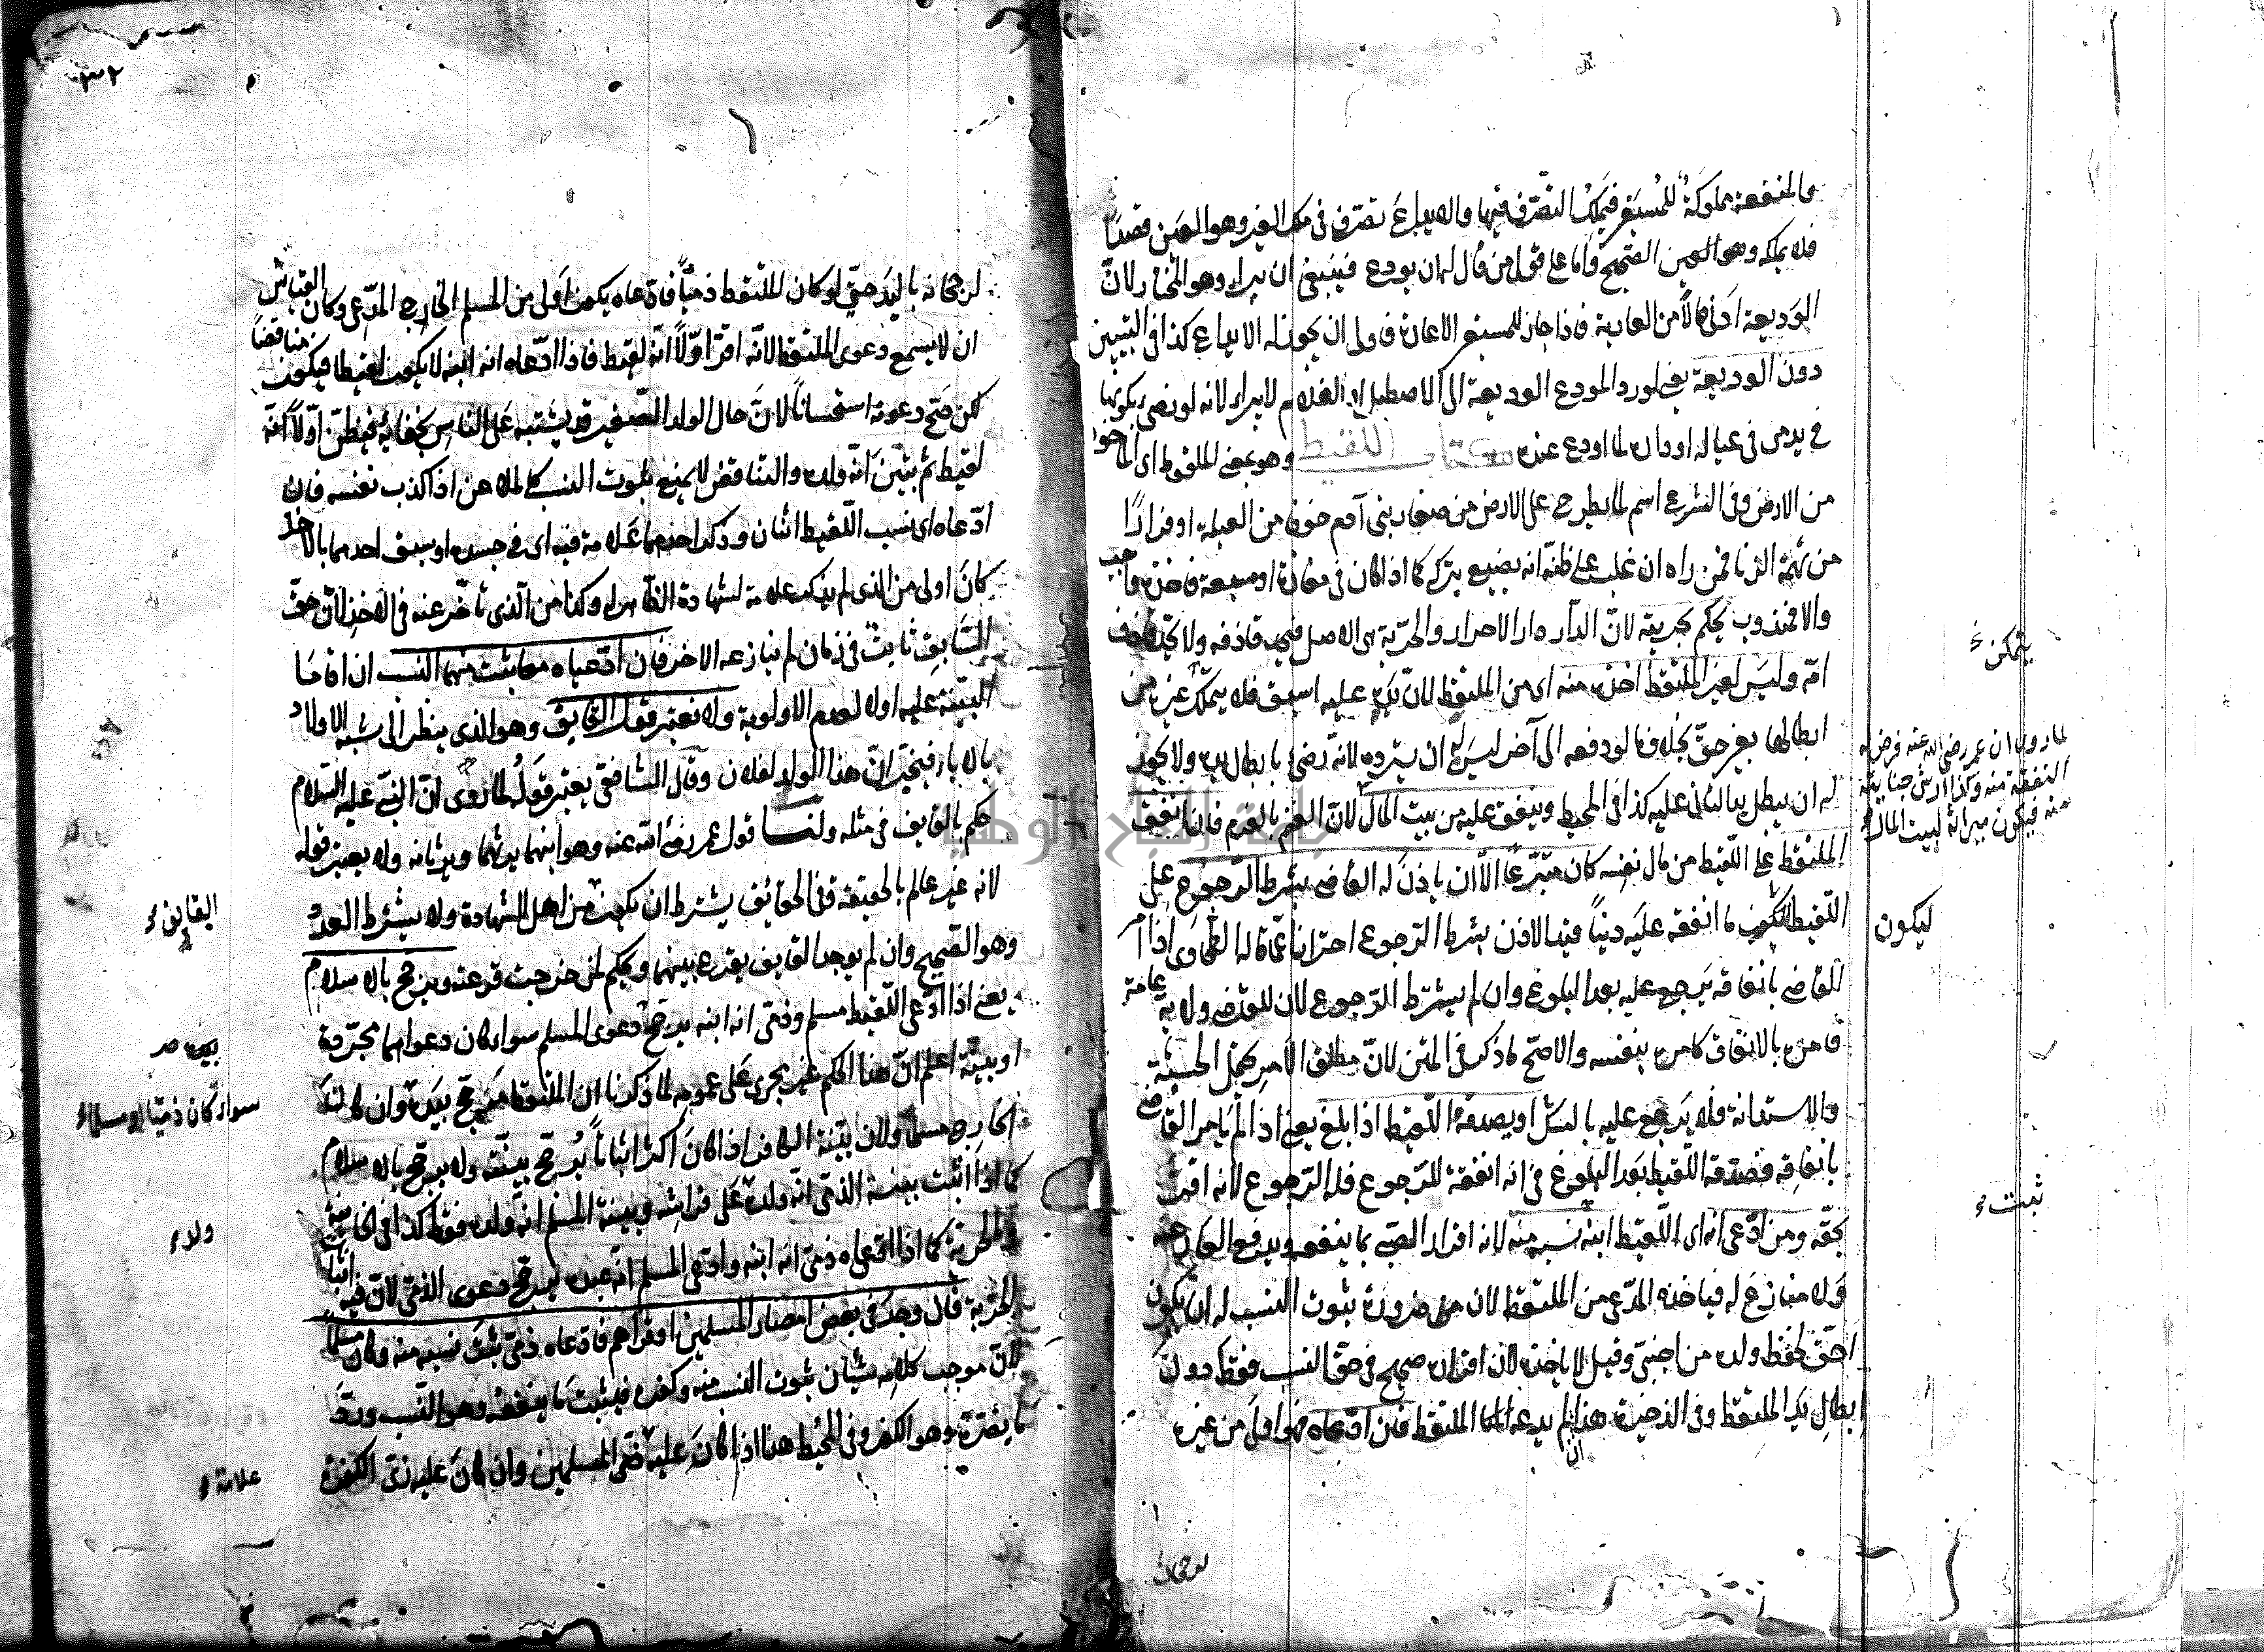 والمنفعة مملوكة للمستعير فيملك التصرف فيها والايداع تصرف في ملك الغير وهو العين قصدا
فلا يملكه وهو الصحيح واما على قول من قال له ان يودع فينبغي ان يبراء وهو المختار لانّ
الوديعة ادنى حالا من العارية فاذا جاز للمستعير الاعارة فاولى ان يجوز له الايداع كذا في التبيين
دون الوديعة يعني لو رد المودع الوديعة الى الاصطبل او الغلام لا يبراء لانه لو رضي بكونها
في يد من في عياله او داره لما اودع عنده كتاب اللقيط وهو بمعنى الملقوط اي الماخوذ
من الارض وفي الشرع اسم لما يطرح على الارض من صغار بني آدم خوفا من العيلة او فرارًا
من تهمة الزنا فمن راه ان غلب على ظنه انه يضيع بتركه كما اذا كان في مفازة او مسبعة فاخذه واجب
والا فمندوب يحكم بحريته لانّ الدار دار الاحرار والحرّية هي الاصل فيحد قاذفه ولا يحد قاذف
امّه وليس لغير الملتقط اخذه منه اي من الملتقط لانّ يده عليه اسبق فلا يتملك غيره من
ابطالها بغير حقّ بخلاف ما لو دفعه الى آخر ليس له ان يسترده لانّه رضي بابطال يده ولا يجوز
له ان يبطل يد الثاني عليه كذا في المحيط وينفق عليه من بيت المال لانّ الغنم بالغرم فان انفق
الملتقط على اللقيط من مال نفسه كان متبرّعًا الّا ان ياذن له القاضي بشرط الرجوع على
اللقيط ليكون ما انفقه عليه دينًا قيد الاذن بشرط الرجوع احترازا عمّا قاله الطحاوي اذا امر
القاضي بانفاقه يرجع عليه بعد البلوغ وان لم يشترط الرجوع لان للقاضي ولاية عامّة
فامره بالانفاق كامره بنفسه والاصحّ ما ذكر في المتن لانّ مطلق الامر يحتمل الحسبة
والاستعانة فلا يرجع عليه بالشك او يصدقه اللقيط اذا بلغ يعني اذا لم يامر القاضي
بانفاقه فصدقه اللقيط بعد البلوغ في انه انفقه للرجوع فله الرجوع لانه اقرّ
بحقّه ومن ادّعى انه اي اللقيط ابنه ثبت نسبه منه لانه اقرار للصبي بما ينفعه ويدفع العار عنه
ولا منازع له فياخذه المدّعي من الملتقط لان من ضرورة ثبوت النسب له ان يكون
احقّ بحفظ ولده من اجنبيّ وقيل لا ياخذه لانّ اقراره صحيح في حقّ النسب فقط دون
ابطال يد الملتقط وفي الذخيرة هذا ان لم يدعه الملتقط فان ادّعاه فهو اولى من غيره
يتمكن
لما روي ان عمر رضي الله عنه فرض له
النفقة منه وكذا ارش جنايته
منه فيكون ميراثه لبيت المال
ليكون
ثبت
لرجحانه
٣٢
لرجحانه باليد حتى لو كان الملتقط ذميًّا فادّعاه يكون اولى من المسلم الخارج المدّعي وكان القياس
ان لا يسمع دعوى الملتقط لانّه اقرّ اوّلًا انّه لقيط فاذا ادّعاه انه ابنه لا يكون لقيطا فيكون مناقضًا
لكن صحّ دعوته استحسانًا لانّ حال الولد الصغير قد يشتبه على الناس بخفائه فيظن اوّلًا انّه
لقيط ثم تبيّن انّه ولده والتناقض لا يمنع ثبوت النسب كالملاعن اذا اكذب نفسه فان
ادّعاه اي نسب اللقيط اثنان وذكر احدهما علامة فيه اي في جسده او سبق احدهما بالاخذ
كان اولى من الذي لم يذكر علامة لشهادة الظاهر له وكذا من الذي تاخّر عنه في الاخذ لانّ حقّ
السابق ثابت في زمان لم ينازعه الاخر فان ادّعياه معا يثبت منهما النسب ان اقاما
البيّنة عليه او لا لعدم الاولوية ولا نعتبر قول القايف وهو الذي ينظر الى شبه الاولاد
بالاباء فيخبر انّ هذا الولد لفلان وقال الشافعي يعتبر قوله لما روي انّ النبيّ عليه السلام
حكم بالقايف في مثله ولنا قول عمر رضي الله عنه وهو ابنهما يرثهما ويرثانه ولا يعتبر قوله
لانه غير عالم بالحقيقة وفي الحقائق يشترط ان يكون من اهل الشهادة ولا يشترط العدد
وهو الصحيح وان لم يوجد القايف يقرع بينهما ويحكم لمن خرجت قرعته ويرجّح بالاسلام
يعني اذا ادّعى اللقيط مسلم وذمّي انه ابنه يرجّح دعوى المسلم سواء كان دعواهما مجرّدة
او ببيّنة اعلم انّ هذا الحكم غير مجرى على عمومه لما ذكرنا ان الملتقط مرجّح بيده وان كان
الخارج مسلما ولان بيّنة الكافر اذا كان اكثر اثباتًا يرجّح بيّنته ولا يرجّح بالاسلام
كما اذا اثبت ببيّنة الذمّي انّه ولده على فراشه وبيّنة المسلم انّه ولده فقط كذا في الخانية
وبالحرية كما اذا ادّعاه ذمّي انه ابنه وادّعى المسلم انّه عبده يرجّح دعوى الذمّي لانّ فيه اثبات
الحرّية قال وجد في بعض امصار المسلمين او قراهم فادّعاه ذمّي ثبت نسبه منه وكان مسلمًا
لانّ موجب كلامه شيئان ثبوت النسب منه وكفره فيثبت ما ينفعه وهو النسب وردّ
ما يضرّه وهو الكفر وفي المحيط هذا اذا كان عليه زيّ المسلمين وان كان عليه زيّ الكفرة
القايف
بيده صر
سواء كان ذميّا او مسلما
ولاء
علامة